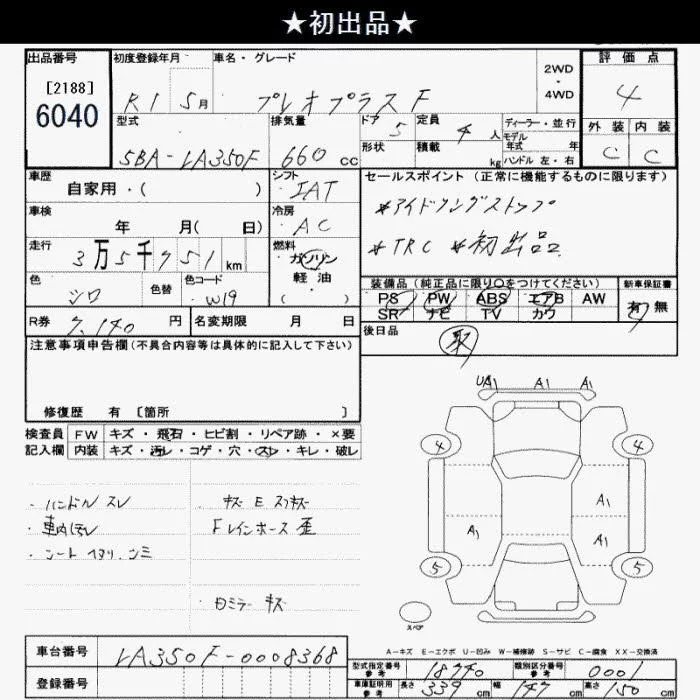 ★初出品★
出品番号 [2188] 6040
初度登録年月 R1 5月
車名・グレード プレオプラスF
2WD ・ 4WD
評価点 4
型式 5BA-LA350F
排気量 660 cc
ドア 5
形状
定員 4 人
積載 kg
ディーラー・並行
モデル年式 年
ハンドル 左・右
外装 C 内装 C
車歴 自家用・( )
シフト IAT
セールスポイント (正常に機能するものに限ります)
車検 年 月( 日)
冷房 AC
*アイドリングストップ
走行 3万5千751km
燃料 ガソリン 軽油 ( ・ )
*TRC *初出品
色 シロ 色替
色コード W19
装備品 (純正品に限り○をつけてください)
PS PW ABS エアB AW
SR ナビ TV カワ
新車保証書 有 無
R券 7,140 円
名変期限 月 日
後日品 取
注意事項申告欄 (不具合内容等は具体的に記入して下さい)
修復歴 有 [箇所 ]
検査員記入欄
FW キズ・飛石・ヒビ割・リペア跡・×要
内装 キズ・汚レ・コゲ・穴・スレ・キレ・破レ
・ハンドル スレ
・車内汚レ
・シート ヘタリ、シミ
キズ E スリキズ
Fレインホース 歪
ロミラー キズ
UA1 A1 A1
4 4
A1
A1 A1
5 5
スペア
A-キズ E-エクボ U-凹み W-補修跡 S-サビ C-腐食 XX-交換済
車台番号 LA350F-0008368
登録番号
型式指定番号 参考 18740
類別区分番号 参考 0001
車庫証明用 参考 長さ 339 cm 幅 147 cm 高さ 150 cm